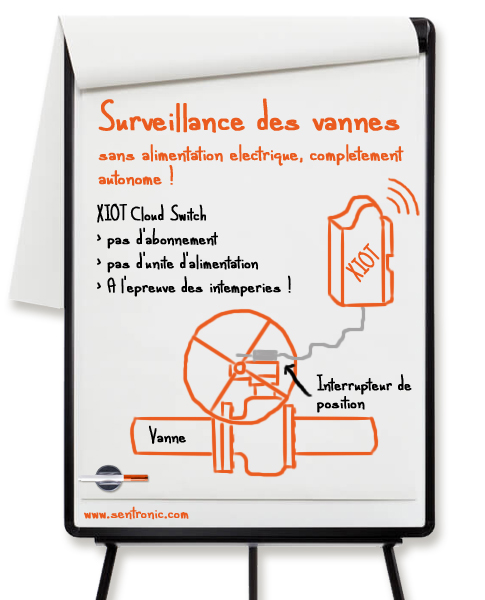 Surveillance des vannes
sans alimentation electrique, completement
autonome !
XIOT Cloud Switch
> pas d'abonnement
> pas d'unite d'alimentation
> A l'epreuve des intemperies !
XIOT
Interrupteur de
position
Vanne
www.sentronic.com